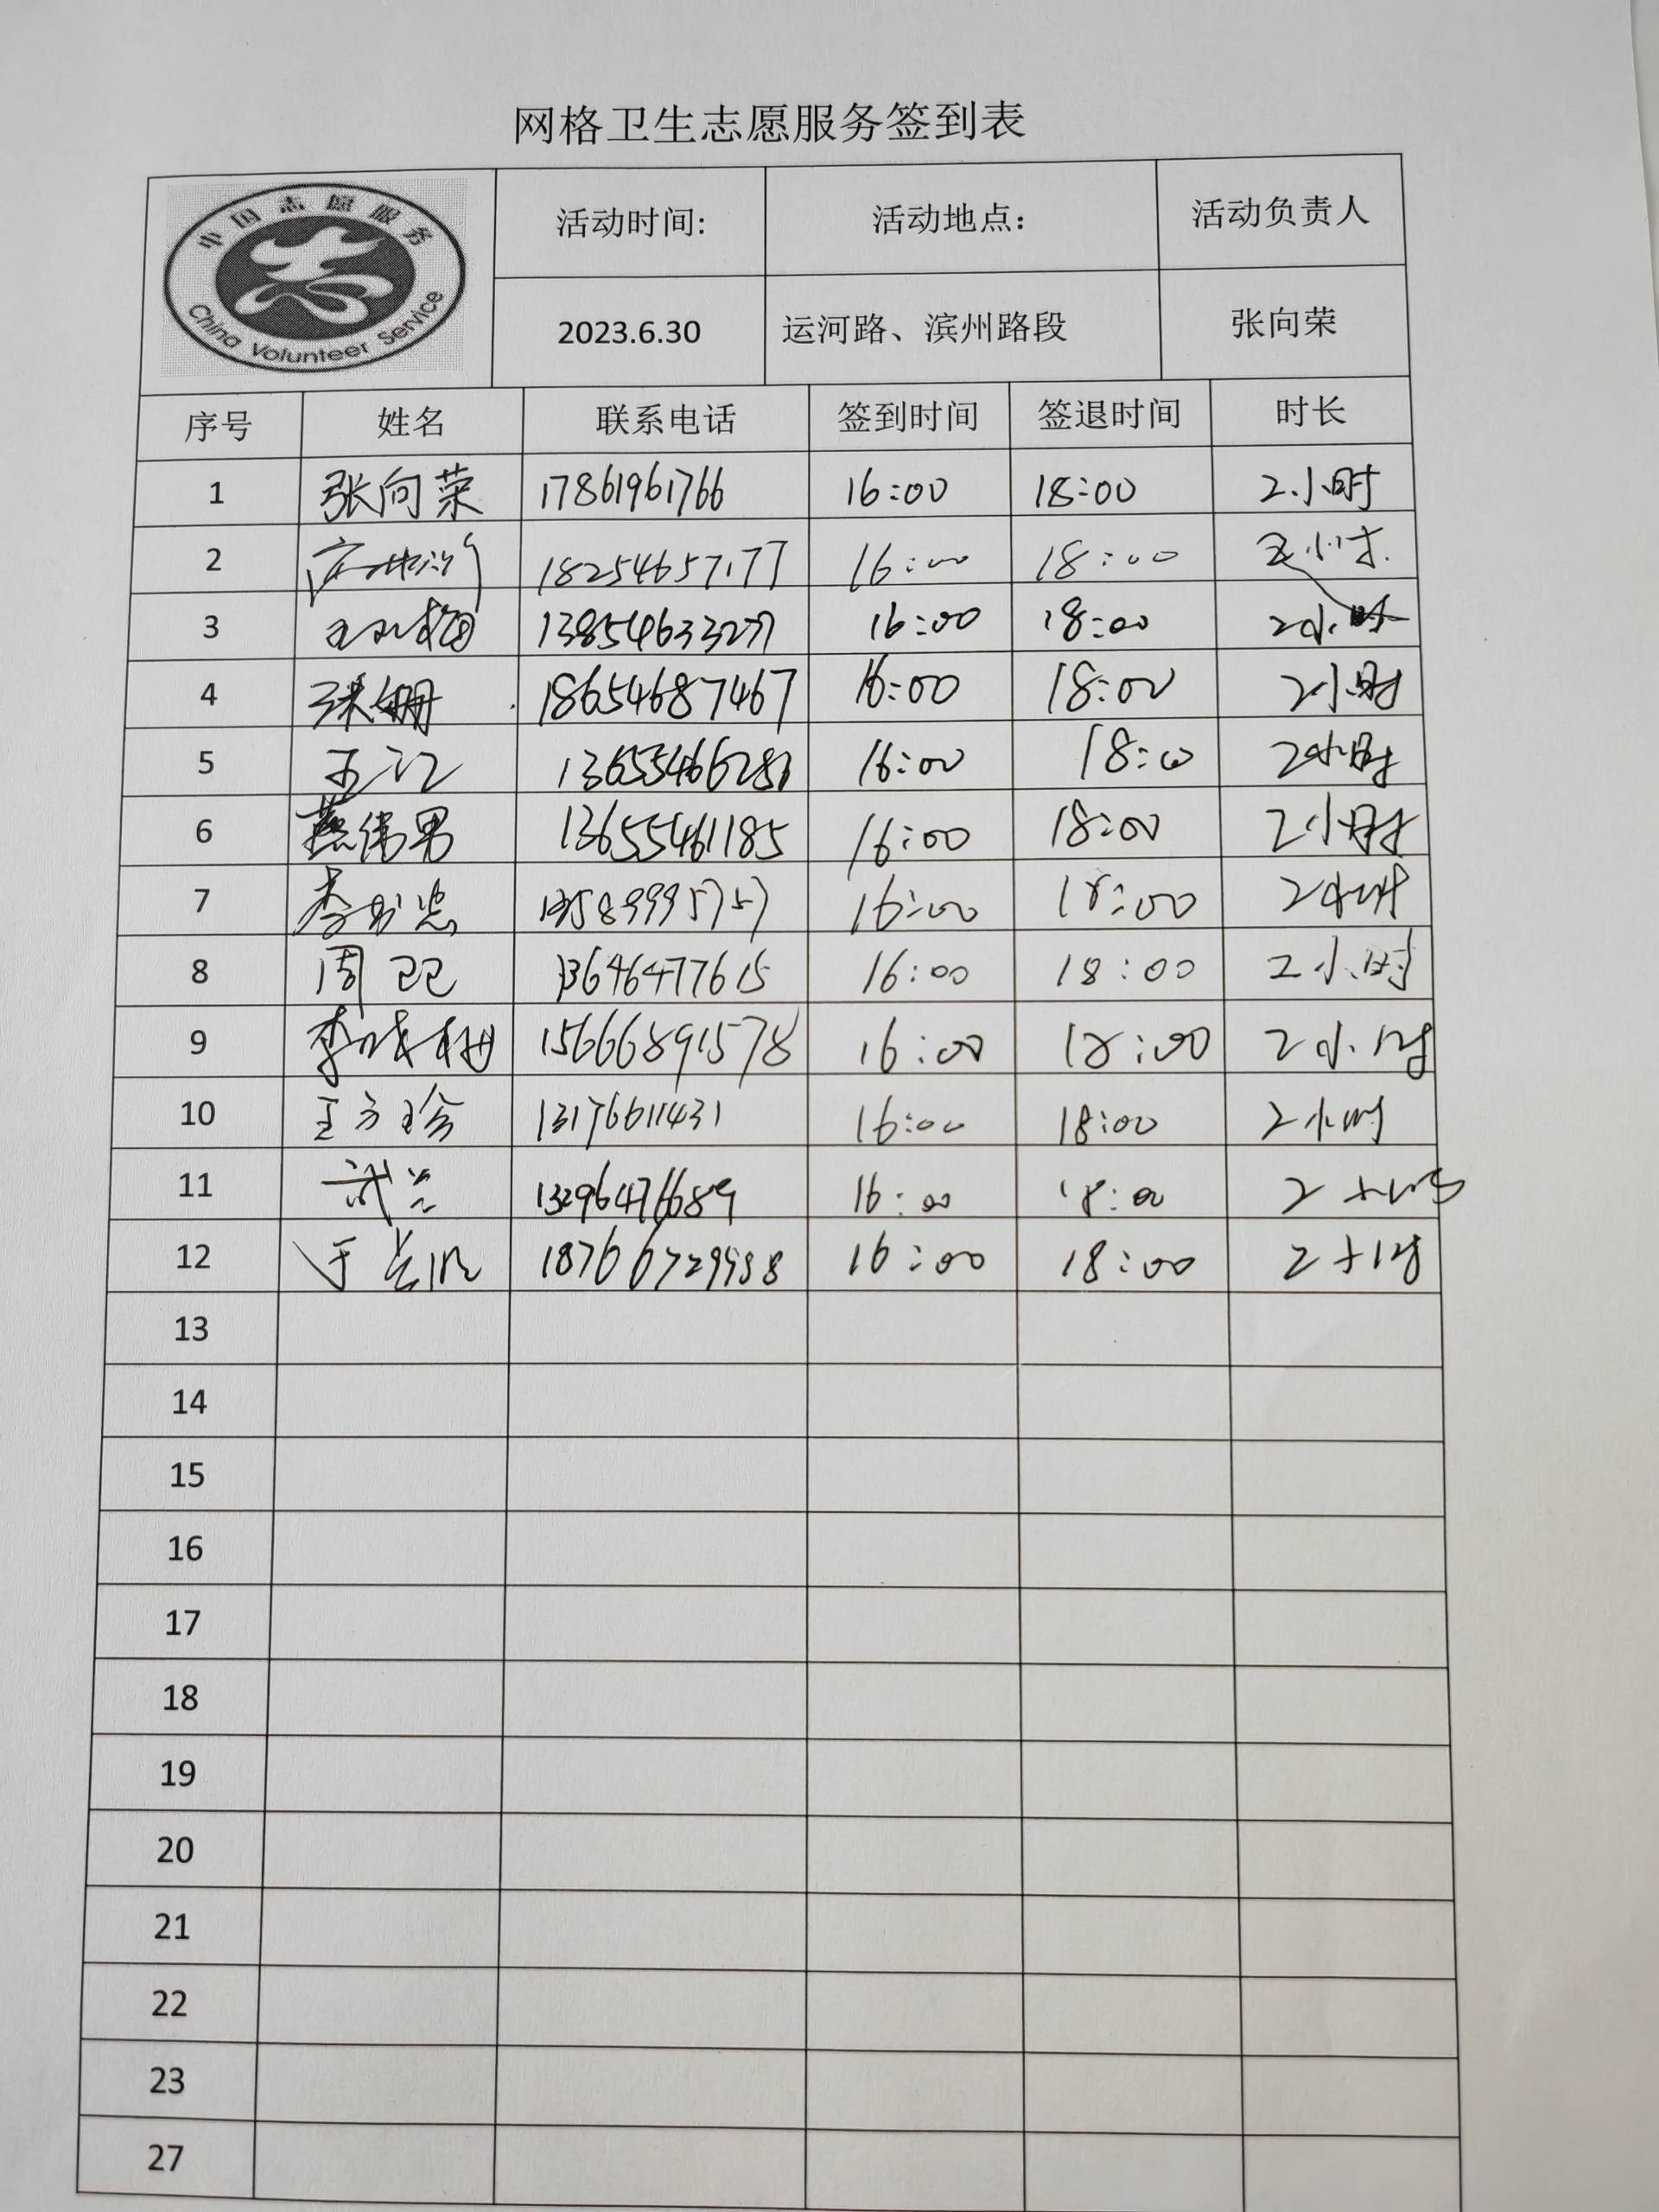 网格卫生志愿服务签到表
中国志愿服务
China Volunteer Service
活动时间: 活动地点: 活动负责人
2023.6.30 运河路、滨州路段 张向荣
序号 姓名 联系电话 签到时间 签退时间 时长
1 张向荣 17861961766 16:00 18:00 2小时
2 18254657177 16:00 18:00 小时
3 16:00 18:00 2小时
4 张姗 18654687467 16:00 18:00 2小时
5 王江 16:00 18:00 2小时
6 燕伟男 13655461185 16:00 18:00 2小时
7 16:00 18:00 2小时
8 周 13646477615 16:00 18:00 2小时
9 李 15666891578 16:00 18:00 2小时
10 王方珍 13176611431 16:00 18:00 2小时
11 武兰 13296476689 16:00 18:00 2小时
12 于 16:00 18:00 2小时
13
14
15
16
17
18
19
20
21
22
23
27